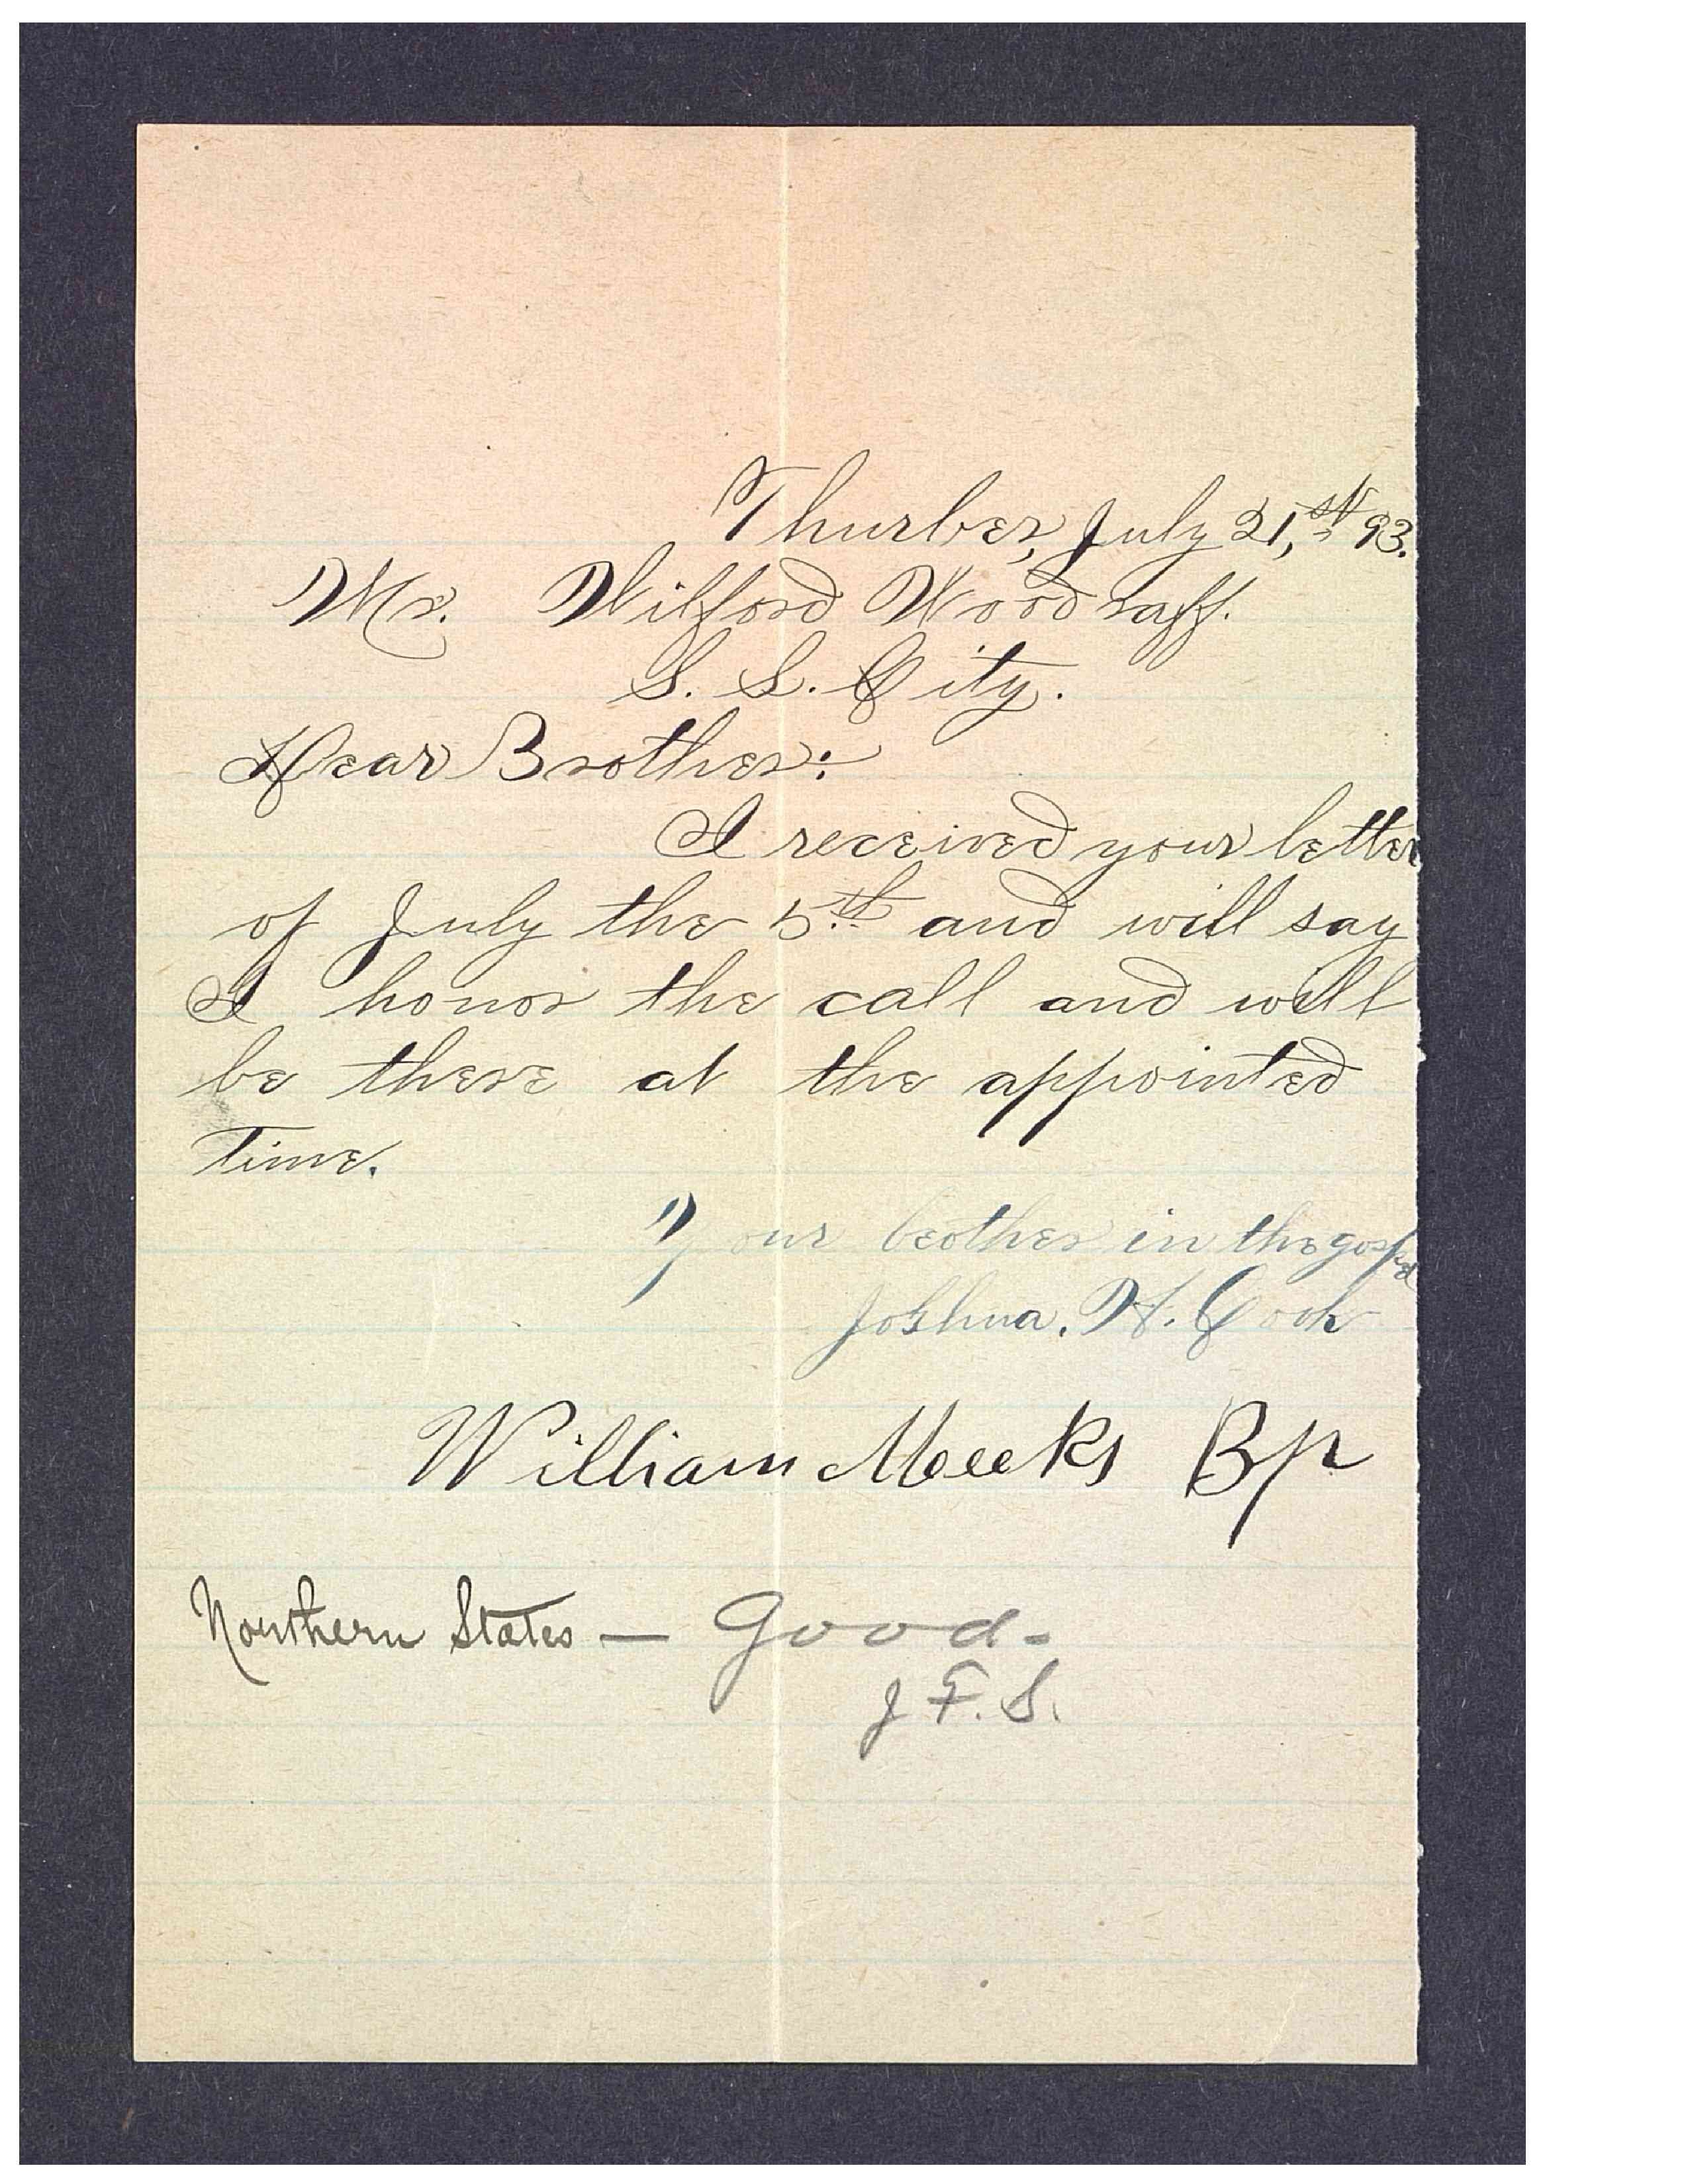 Thurber, July 21,st 93.
Mr. Wilford Woodraff.
S. L. City.
Dear Brother:
I received your letter
of July the 5th and will say
I honor the call and will
be there at the appointed
Time.
Your beother in the gospel
Joshua. H. Cook
William Meeks Bp
Northern States — Good.
J F. S.